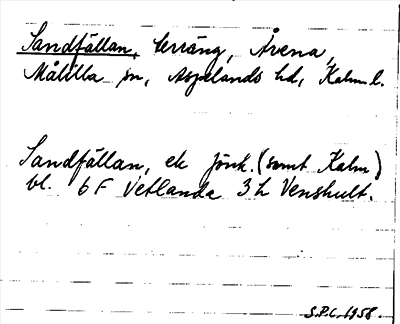 Sandfällan, terräng, Årena,
Målilla sn, Aspelands hd, Kalm l.
Sandfällan, ek Jönk. (samt Kalm)
bl. 6 F Vetlanda 3 h Venshult.
S.P.L. 1958.